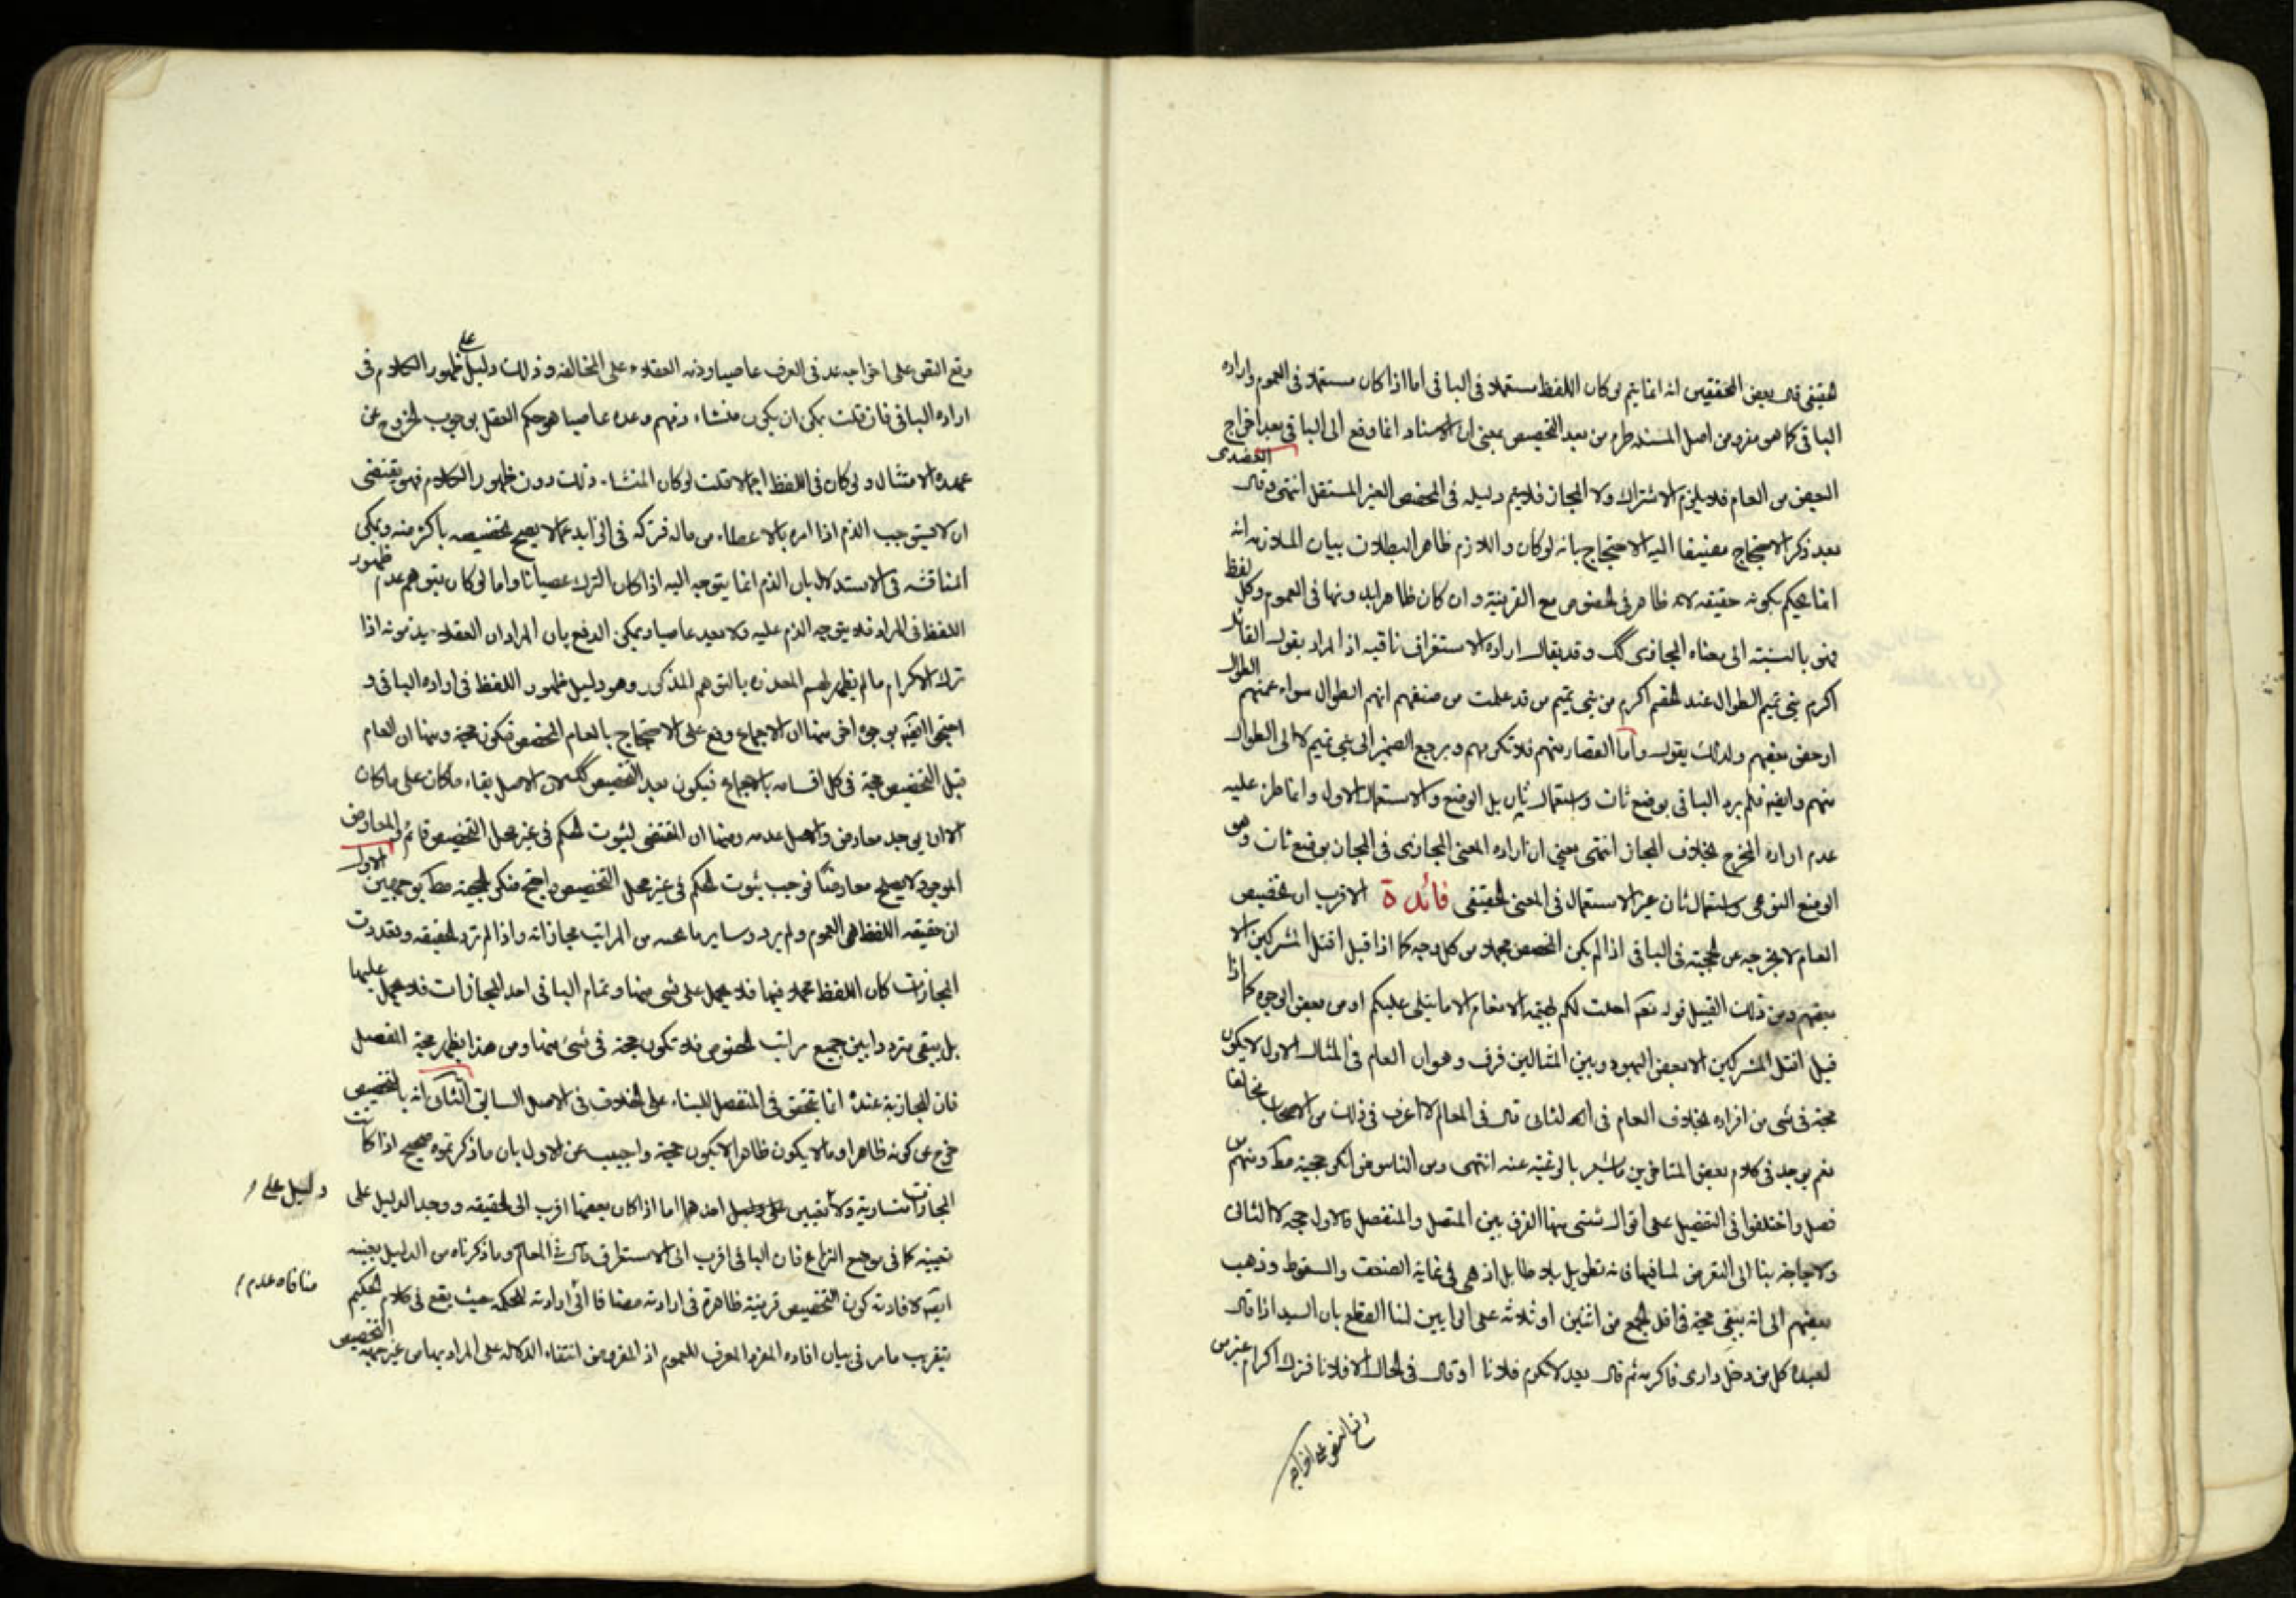 حقيقى قال بعض المحققين انه انما يتم لو كان اللفظ مستعملا فى الباقى اما اذا كان مستعملا فى العموم واراده
الباقى كما هو مفروض اصل المسئله طرء من بعد التخصيص بمعنى ان الاسناد انما وقع الى الباقى بعد اخراج
البعض من العام فلا يلزم الاشتراك ولا المجاز فلا يتم دليله فى المخصص الغير المستقل انتهى وقال العضدى
بعد ذكر الاحتجاج مضيفا اليه الاحتجاج بانه لو كان واللازم ظاهر البطلان بيان الملازمه انه
انما يحكم بكونه حقيقه لانه ظاهر فى الخصوص مع القرينة وان كان ظاهرا بدونها فى العموم وكل لفظ
فهو بالنسبة الى معناه المجازى كك وقد يقال اراده الاستغراق باقيه اذ المراد بقول القائل
اكرم بنى تميم الطوال عند الخصم اكرم من بنى تميم من قد علمت من صفتهم انهم الطوال سواء عمهم الطول
او خص بعضهم ولذلك يقول واما القصار منهم فلا تكرمهم ويرجع الضمير الى بنى تميم لا الى الطوال
منهم وايضا فلم يرد الباقى بوضع ثان واستعمال ثان بل الوضع والاستعمال الاول وانما طرء عليه
عدم اراده المخرج بخلاف المجاز انتهى يعنى ان اراده المعنى المجازى فى المجاز بوضع ثان وهو
الوضع النوعى واستعمال ثان غير الاستعمال فى المعنى الحقيقى فائدة الاقرب ان تخصيص
العام لا يخرجه عن الحجية فى الباقى اذا لم يكن المخصص مجملا من كل وجه كما اذا قيل اقتل المشركين الا
بعضهم ومن ذلك القبيل قوله تعم احلت لكم بهيمة الانعام الا ما يتلى عليكم او من بعض الوجوه كما اذا
قيل اقتل المشركين الا بعض اليهود وبين المثالين فرق وهو ان العام فى المثال الاول لا يكون
حجة فى شى من افراده بخلاف العام فى الثانى قال فى المعالم لا اعرف فى ذلك من الاصحاب مخالفا
نعم يوجد فى كلام بعض المتاخرين ما يشعر بالرغبة عنه انتهى ومن الناس من انكر حجيته مط ومنهم من
فصل واختلفوا فى التفصيل على اقوال شتى منها الفرق بين المتصل والمنفصل فالاول حجه لا الثانى
ولا حاجة بنا الى التعرض لسايرها فانه تطويل بلا طايل اذ هى فى غاية الضعف والسقوط وذهب
بعضهم الى انه يبقى حجة فى اقل الجمع من اثنين او ثلاثه على الرايين لنا القطع بان السيد اذا قال
لعبده كل من دخل دارى فاكرمه ثم قال بعد لا تكرم فلانا او قال فى الحال الا فلانا فترك اكرام غير من
وقع النص على اخراجه
وقع النص على اخراجه عد فى العرف عاصيا وذمه العقلاء على المخالفه وذلك دليل على ظهور الكلام فى
اراده الباقى فان قلت يمكن ان يكون منشاء ذمهم وعده عاصيا هو حكم العقل بوجوب الخروج عن
عهده الامتثال ولو كان فى اللفظ اجمالا قلت لو كان المنشاء ذلك دون ظهور الكلام فهو يقتضى
ان لا يستوجب الذم اذا امره بالاعطاء من ماله فتركه فى الزايد عما لا يصح تخصيصه باكثر منه ويمكن
المناقشه فى الاستدلال بان الذم انما يتوجه اليه اذا كان الترك عصيانا واما لو كان بتوهم عدم ظهور
اللفظ فى المراد فلا يتوجه الذم عليه ولا يعد عاصيا ويمكن الدفع بان المراد ان العقلاء يذمونه اذا
ترك الاكرام ما لم يظهر لهم المعذره بالتوهم المذكور وهو دليل ظهور اللفظ فى اراده الباقى و
احتج ايضا بوجوه اخر منها ان الاجماع وقع على الاحتجاج بالعام المخصص فيكون حجة ومنها ان العام
قبل التخصيص حجة فى كل اقسامه بالاجماع فيكون بعد التخصيص كك لان الاصل بقاء ما كان على ما كان
الا ان يوجد معارض والاصل عدمه ومنها ان المقتضى لثبوت الحكم فى غير محل التخصيص قائم والمعارض
الموجود لا يصلح معارضا فوجب ثبوت الحكم فى غير محل التخصيص احتج منكر الحجية مط بوجهين الاول
ان حقيقه اللفظ هى العموم ولم يرد وساير ما تحته من المراتب مجازاته واذا لم ترد الحقيقه وتعددت
المجازات كان اللفظ مجملا فيها فلا يحمل على شى منها وتمام الباقى احد المجازات فلا يحمل عليها
بل يبقى مترددا بين جميع مراتب الخصوص فلا تكون حجة فى شى منها ومن هذا يظهر حجة المفصل
فان المجازية عنده انما تحقق فى المنفصل للبناء على الخلاف فى الاصل السابق الثانى انه بالتخصيص
خرج عن كونه ظاهرا وما لا يكون ظاهرا لا يكون حجة واجيب عن الاول بان ما ذكرتموه صحيح اذا كانت
المجازات متساوية ولا دليل على تعيين احدهما اما اذا كان بعضها اقرب الى الحقيقه ووجد الدليل على
تعيينه كما فى موضع النزاع فان الباقى اقرب الى الاستغراق قال فى المعالم وما ذكرناه من الدليل يعينه
ايضا لافادته كون التخصيص قرينة ظاهرة فى ارادته مضافا الى منافاه عدم ارادته للحكمه حيث يقع فى كلام الحكيم
بتقريب ما مر فى بيان افاده المفرد المعرف للعموم اذ المفروض انتفاء الدلاله على المراد بها من غير جهة التخصيص